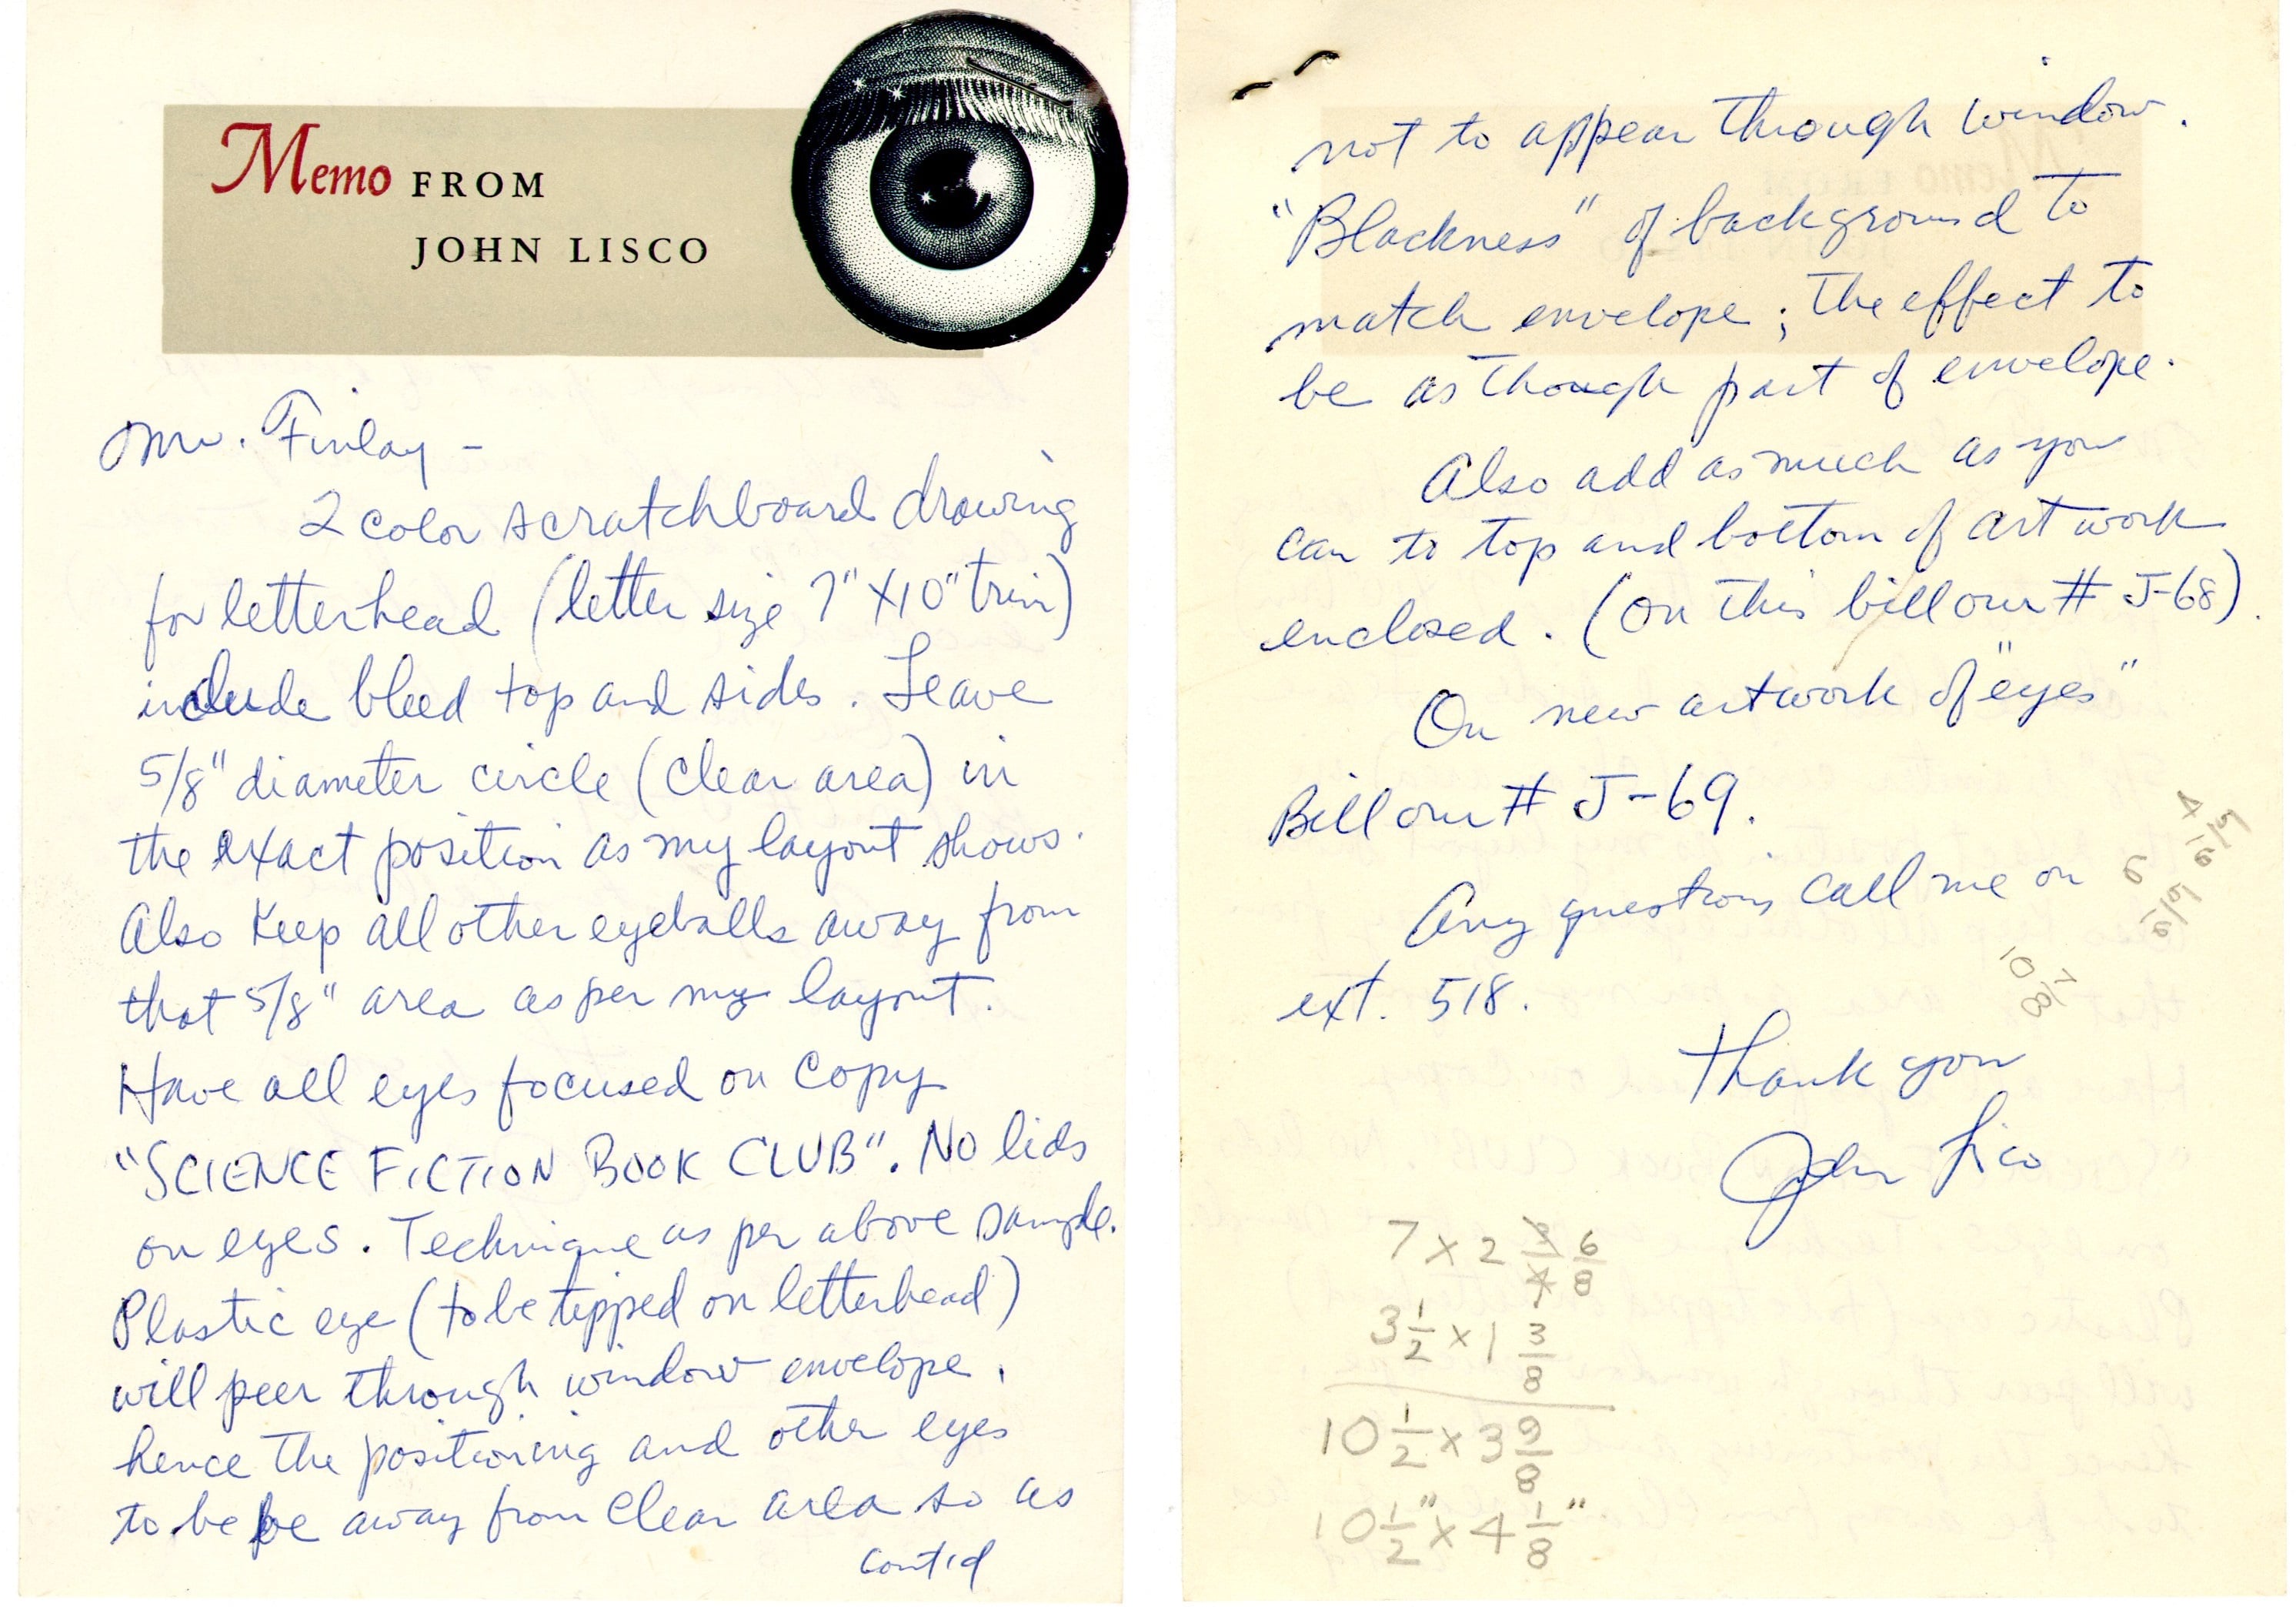 Memo FROM
JOHN LISCO
Mr. Finlay -
2 color scratchboard drawing
for letterhead (letter size 7" X 10" trim)
include bleed top and sides. Leave
5/8" diameter circle (clear area) in
the exact position as my layout shows.
Also keep all other eyeballs away from
that 5/8" area as per my layout.
Have all eyes focused on copy
"SCIENCE FICTION BOOK CLUB". No lids
on eyes. Technique as per above sample.
Plastic eye (to be tipped on letterhead)
will peer through window envelope,
hence the positioning and other eyes
to be be away from clear area so as
cont'd
not to appear through window.
"Blackness" of background to
match envelope; the effect to
be as though part of envelope.
Also add as much as you
can to top and bottom of art work
enclosed. (On this bill our # J-68).
On new artwork of "eyes"
Bill our # J-69.
Any questions call me on
ext. 518.
Thank you
John Lisco
7 x 2 3/4 6/8
3 1/2 x 1 3/8
10 1/2 x 3 9/8
10 1/2" x 4 1/8"
10 7/8